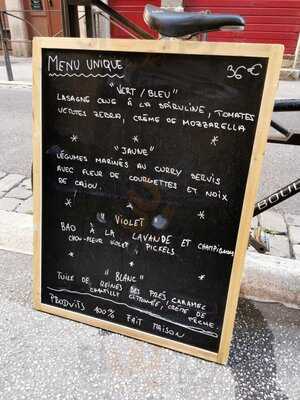 MENU UNIQUE 36€
"VERT / BLEU"
LASAGNE CRUE À LA SPIRULINE, TOMATES
VERTES ZEBRA, CRÈME DE MOZZARELLA
* *
"JAUNE"
LÉGUMES MARINÉS AU CURRY DERVIS
AVEC FLEUR DE COURGETTES ET NOIX
DE CAJOU.
* *
"VIOLET"
BAO À LA LAVANDE ET CHAMPIGNONS
CHOU-FLEUR VIOLET, PICKELS
* *
"BLANC"
TUILE DE REINES DES PRÉS, CARAMEL
CHANTILLY CITRONNÉE, CRÈME DE
PÊCHE
PRODUITS 100% FAIT MAISON